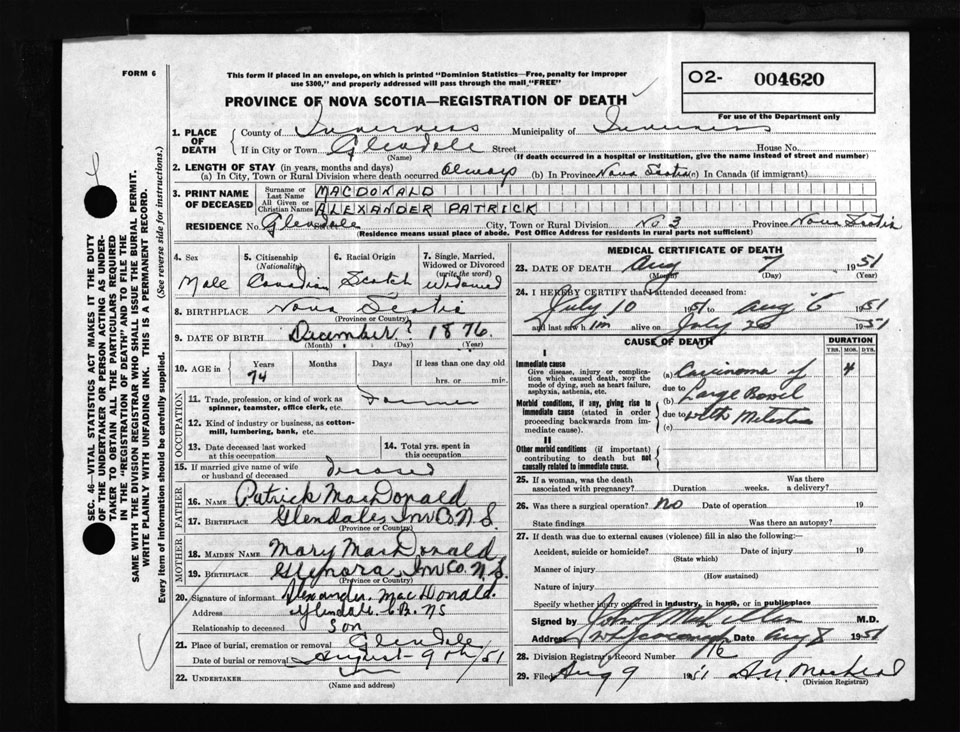 FORM 6
This form if placed in an envelope, on which is printed "Dominion Statistics—Free, penalty for improper
use $300," and properly addressed will pass through the mail "FREE"
O2- 004620
PROVINCE OF NOVA SCOTIA—REGISTRATION OF DEATH
For use of the Department only
1. PLACE OF DEATH County of Inverness Municipality of Inverness
If in City or Town Glendale Street House No.
(Name) (If death occurred in a hospital or institution, give the name instead of street and number)
2. LENGTH OF STAY (in years, months and days)
(a) In City, Town or Rural Division where death occurred always (b) In Province Nova Scotia (c) In Canada (if immigrant)
3. PRINT NAME OF DECEASED Surname or Last Name MACDONALD
All Given or Christian Names ALEXANDER PATRICK
RESIDENCE No. Glendale Street City, Town or Rural Division No 3 Province Nova Scotia
(Residence means usual place of abode. Post Office Address for residents in rural parts not sufficient)
4. Sex 5. Citizenship (Nationality) 6. Racial Origin 7. Single, Married, Widowed or Divorced (write the word)
Male Canadian Scotch Widowed
8. BIRTHPLACE Nova Scotia
(Province or Country)
9. DATE OF BIRTH December ? 1876
(Month) (Day) (Year)
10. AGE in Years Months Days If less than one day old
74 hrs. or min.
OCCUPATION
11. Trade, profession, or kind of work as spinner, teamster, office clerk, etc. Farmer
12. Kind of industry or business, as cotton-mill, lumbering, bank, etc.
13. Date deceased last worked at this occupation
14. Total yrs. spent in this occupation
15. If married give name of wife or husband of deceased
FATHER
16. NAME Patrick MacDonald
17. BIRTHPLACE Glendale, Inv Co. N.S.
(Province or Country)
MOTHER
18. MAIDEN NAME Mary MacDonald
19. BIRTHPLACE Glenora Inv Co. N.S.
(Province or Country)
20. Signature of informant Alexander MacDonald.
Address Glendale C.B. NS
Relationship to deceased Son
21. Place of burial, cremation or removal Glendale
Date of burial or removal August 9th/51
22. UNDERTAKER
(Name and address)
MEDICAL CERTIFICATE OF DEATH
23. DATE OF DEATH Aug 7 1951
(Month) (Day) (Year)
24. I HEREBY CERTIFY that I attended deceased from:
July 10 1951 to Aug 6 1951
and last saw him alive on July 1951
CAUSE OF DEATH DURATION
YRS. MOS. DYS.
I
Immediate cause
Give disease, injury or complication which caused death, NOT the mode of dying, such as heart failure, asphyxia, asthenia, etc.
(a) Carcinoma of 4
due to
(b) Large Bowel
Morbid conditions, if any, giving rise to immediate cause (stated in order proceeding backwards from immediate cause).
due to with
(c)
II
Other morbid conditions (if important) contributing to death but not causally related to immediate cause.
25. If a woman, was the death associated with pregnancy? Duration weeks. Was there a delivery?
26. Was there a surgical operation? No Date of operation 19
State findings Was there an autopsy?
27. If death was due to external causes (violence) fill in also the following:
Accident, suicide or homicide? Date of injury 19
(State which)
Manner of injury
(How sustained)
Nature of injury
Specify whether injury occurred in industry, in home, or in public place
Signed by John M.D.
Address Date Aug 8 1951
28. Division Registrar's Record Number 76
29. Filed Aug 9 1951
(Division Registrar)
SEC. 46—VITAL STATISTICS ACT MAKES IT THE DUTY
OF THE UNDERTAKER OR PERSON ACTING AS UNDER-
TAKER TO OBTAIN ALL THE PARTICULARS REQUIRED
IN THE "REGISTRATION OF DEATH" AND TO FILE THE
SAME WITH THE DIVISION REGISTRAR WHO SHALL ISSUE THE BURIAL PERMIT.
WRITE PLAINLY WITH UNFADING INK. THIS IS A PERMANENT RECORD.
Every item of information should be carefully supplied. (See reverse side for instructions.)